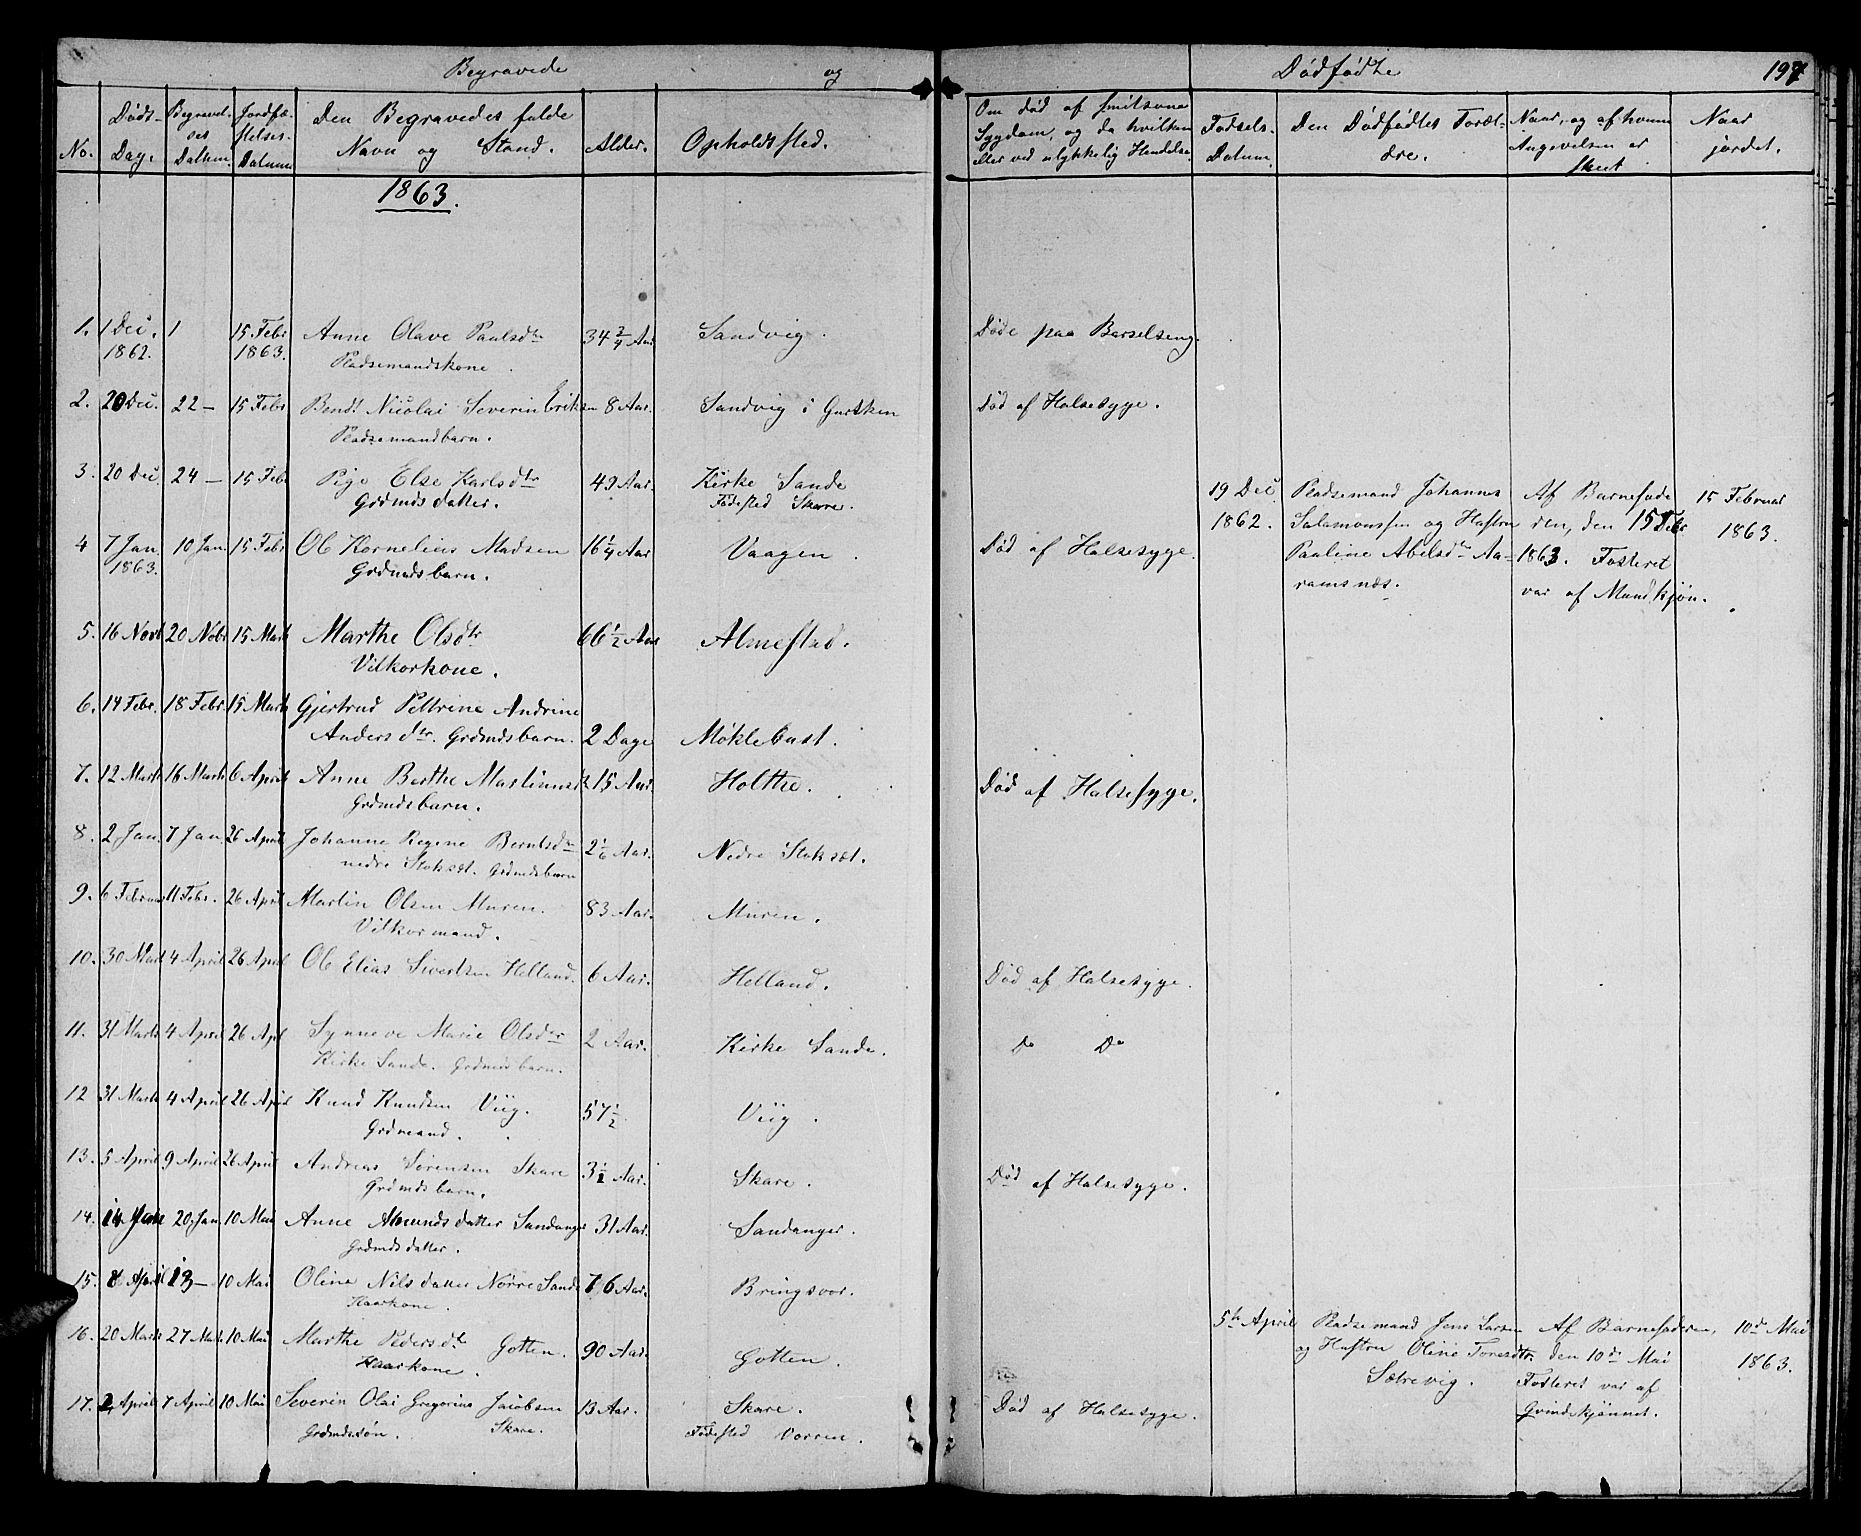 Begravede og Dødfødte 197
No. Døds-Dag. Begravel-ses Datum. Jordfæ-stelses-Datum. Den Begravedes fulde Navn og Stand. Alder. Opholdssted. Om død af smitsom Sygdom, og da hvilken eller ved ulykkelig Hendelse. Fødsels-Datum. Den Dødfødtes Foræl-dre. Naar, og af hvem Angivelsen er skeet Naar jordet.
1863.
1. 1 Dec. 1 15 Febr Anne Olave Paulsdtr 34 3/4 Aar Sandvig. Døde paa Barselseng.
1862. 1863. Pladsemandskone.
2. 20 Dec. 22 — 15 Febr Bendt Nicolai Severin Eriksen 8 Aar. Sandvig i Gursken Død af Halsesyge.
Pladsemandbarn.
3. 20 Dec 24 — 15 Febr Pige Else Karlsdtr 49 Aar. Kirke Sande
Grdmds datter. Fødested Skare.
19 Dec Pladsemand Johannes Af Barnefade 15 Februar
1862. Salamonssen og Hustru ren, den 15 Febr 1863.
4 7 Jan 10 Jan 15 Febr Ole Kornelius Madsen 16 1/4 Aar Vaagen. Død af Halsesyge. Pauline Abelsdtr Aa- 1863. Fosteret
1863. Grdmdsbarn. ramsnæs. var af Mandkjøn.
5. 16 Novb 20 Nobr 15 Marts Marthe Olsdtr 66 1/2 Aar Almestad.
Vilkorkone.
6. 14 Febr. 18 Febr. 15 Marts Gjertrud Pettrine Andrine
Andersdtr. Grdmdsbarn. 2 Dage Møklebust.
7. 12 Marts 16 Marts 6 April Anne Berthe Martinusd 15 Aar. Holthe. Død af Halsesyge.
Grdmdsbarn.
8. 2 Jan. 7 Jan. 26 April Johanne Regine Berntsdtr 2 1/6 Aar. Nedre Stoksæt.
nedre Stoksæt. Grdmdsbarn
9. 6 Februar 11 Febr. 26 April Martin Olsen Muren. 83 Aar. Muren.
Vilkormand.
10. 30 Marts 4 April 26 April Ole Elias Sivertsen Helland. 6 Aar. Helland. Død af Halsesyge.
11. 31 Marts 4 April 26 Apl Synneve Marie Olsdtr 2 Aar. Kirke Sande. Do Do
Kirke Sande. Grdmdsbarn.
12 31 Marts 4 April 26 April Knud Knudsen Viig. 57 1/2 Viig.
Grdmand.
13. 5 April 9 April 26 April Andreas Sørensen Skare 3 1/2 Aar. Skare. Død af Halsesyge.
Grdmdsbarn.
14. 14 Jan 20 Jan. 10 Mai Anne Amunds datter Sandanger 31 Aar. Sandanger.
Grdmds datter.
15. 8 April 13 — 10 Mai Oline Nils datter Nørre Sande 76 Aar. Bringsvor.
Kaarkone.
5te April Pladsemand Jens Larsen Af Barnefaderen, 10de Mai
16. 20 Marts 27 Marts 10 Mai Marthe Pedersdtr Gotten. 90 Aar. Gotten. og Hustru Oline Toresdtr. den 10de Mai 1863.
Kaarkone. Sætrevig. Fosteret var af
17. 2 April 7 April 10 Mai Severin Olai Gregorius Jacobsen 13 Aar. Skare. Død af Halsesyge. Qvindekjønnet.
Grdmdssøn. Skare. Fødested Vorren.